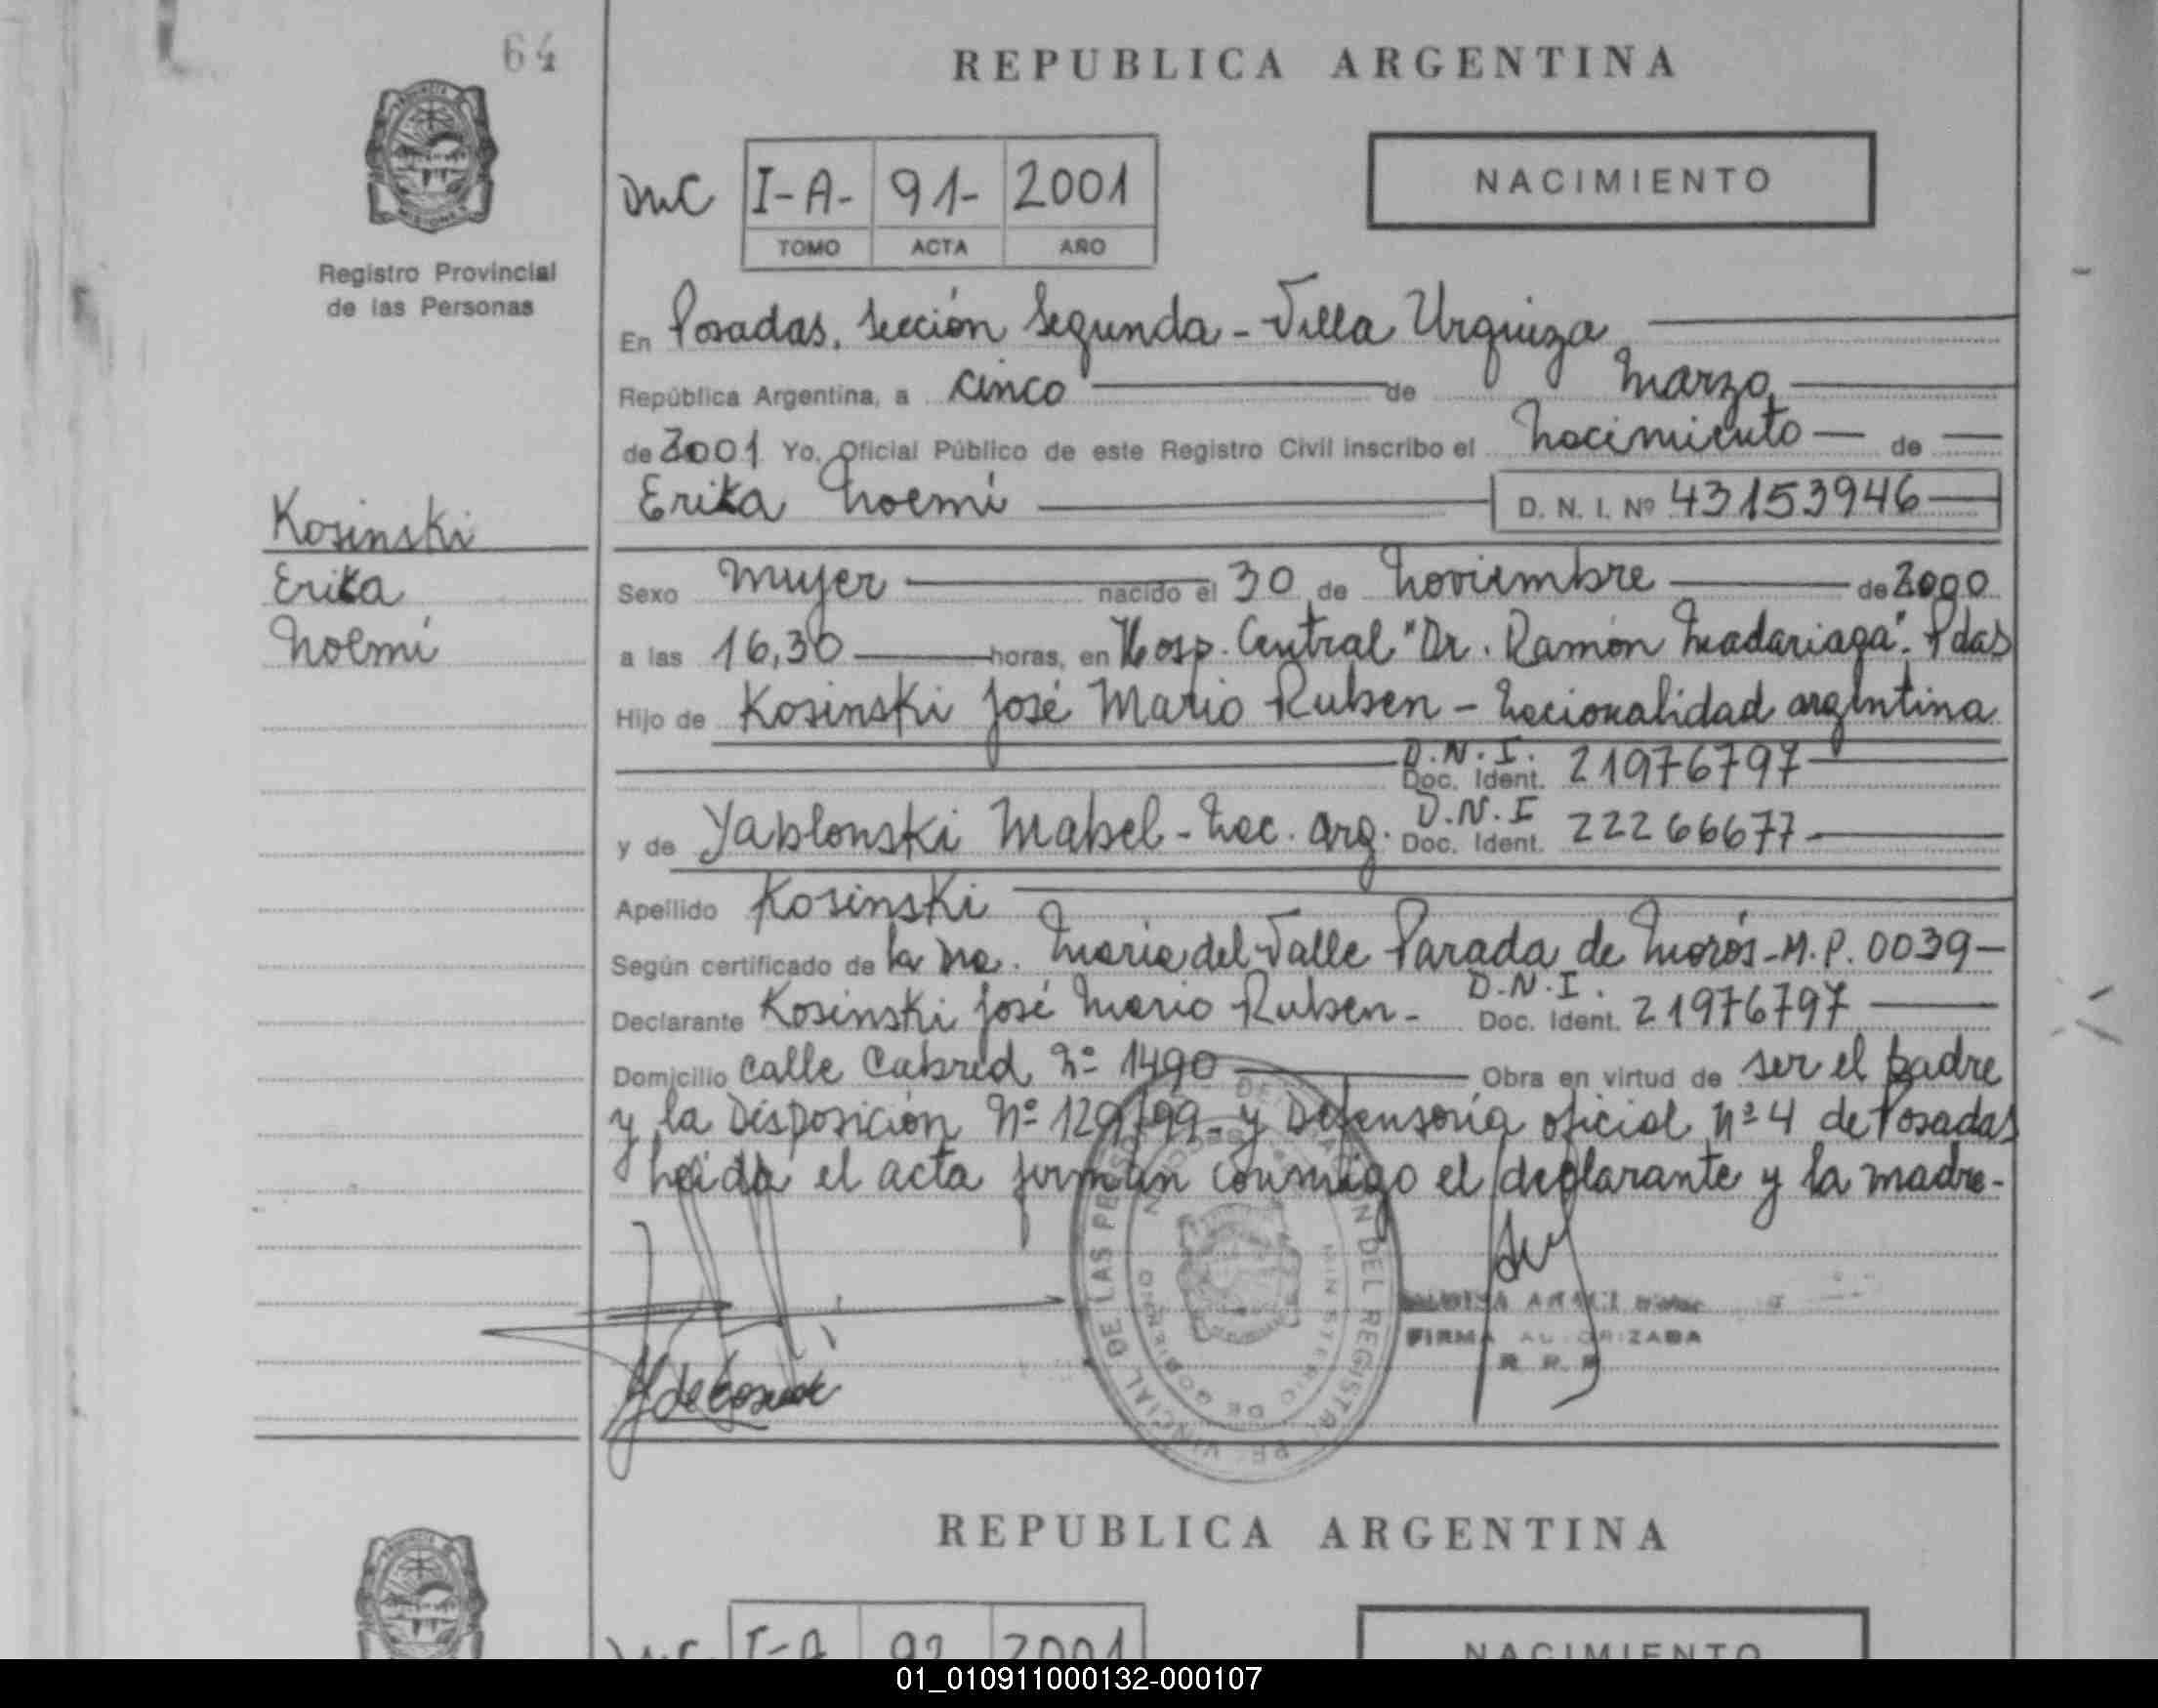 64
REPUBLICA ARGENTINA
DNC I-A- 91- 2001
TOMO ACTA AÑO
NACIMIENTO
Registro Provincial
de las Personas
En Posadas, Sección Segunda - Villa Urquiza
República Argentina, a cinco de Marzo
de 2001 Yo, Oficial Público de este Registro Civil inscribo el Nacimiento de
Erika Noemí D. N. I. Nº 43153946
Kosinski
Erika
Noemí
Sexo Mujer nacido el 30 de Noviembre de 2000
a las 16,30 horas, en Hosp. Central "Dr. Ramón Madariaga". Pdas
Hijo de Kosinski José Mario Ruben - Nacionalidad argentina
D.N.I.
Doc. Ident. 21976797
y de Yablonski Mabel - Nac. arg. D.N.I Doc. Ident. 22266677
Apellido Kosinski
Según certificado de la Dra. Maria del Valle Parada de Morós - M.P. 0039
Declarante Kosinski José Mario Ruben - D.N.I. Doc. Ident. 21976797
Domicilio calle Cabred Nº 1490 Obra en virtud de ser el padre
y la Disposición Nº 129/99 - y Defensoría oficial Nº 4 de Posadas
Leida el acta firman conmigo el declarante y la madre -
FIRMA AUTORIZADA
R. P. P.
DEL REGISTRO PROVINCIAL DE LAS PERSONAS
MINISTERIO DE GOBIERNO
REPUBLICA ARGENTINA
DNC I-A 92 2001
NACIMIENTO
01_010911000132-000107